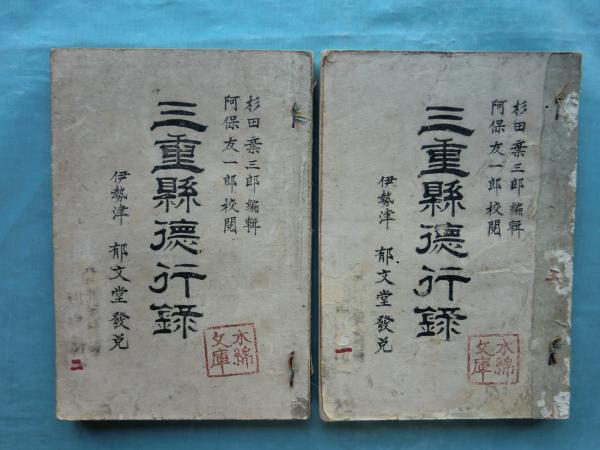 杉田棄三郎編輯
阿保友一郎校閲
三重縣德行錄
伊勢津 郁文堂發兌
木綿文庫
一
杉田棄三郎編輯
阿保友一郎校閲
三重縣德行錄
伊勢津 郁文堂發兌
木綿文庫
二